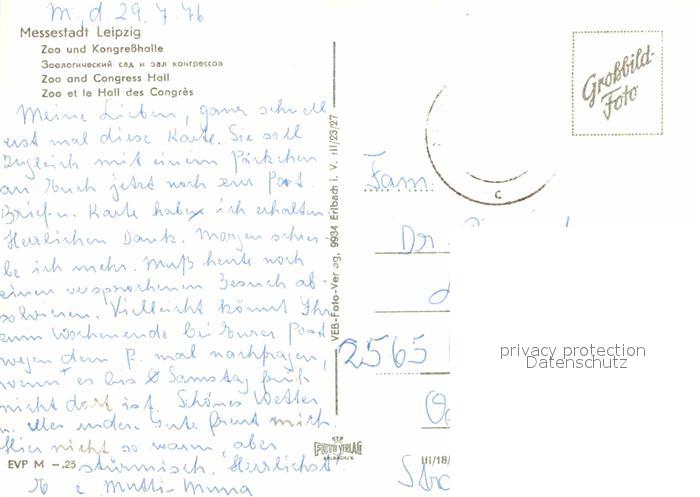 M., d 29. 7. 76
Messestadt Leipzig
Zoo und Kongreßhalle
Зоологический сад и зал конгрессов
Zoo and Congress Hall
Zoo et le Hall des Congrès
Meine Lieben, ganz schnell
erst mal diese Karte. Sie soll
zugleich mit einem Päckchen
an Euch jetzt noch zur Post
Brief u. Karte habe ich erhalten.
Herzlichen Dank. Morgen schrei-
be ich mehr. Muß heute noch
einen versprochenen Besuch ab-
solvieren. Vielleicht könnt Ihr
zum Wochenende bei Eurer Post
wegen dem P. mal nachfragen,
wenn es bis Samstag früh
nicht dort ist. Schönes Wetter
u. alles and. Gute freut mich.
Hier nicht so warm, aber
stürmisch. Herzlichst
Mutti-Muna
EVP M –.25
VEB-Foto-Verlag, 9934 Erlbach i. V. III/23/27
FOTO VERLAG
ERLBACH
Großbild-
Foto
C
Fam.
Dr.
2565
III/18/
privacy protection
Datenschutz